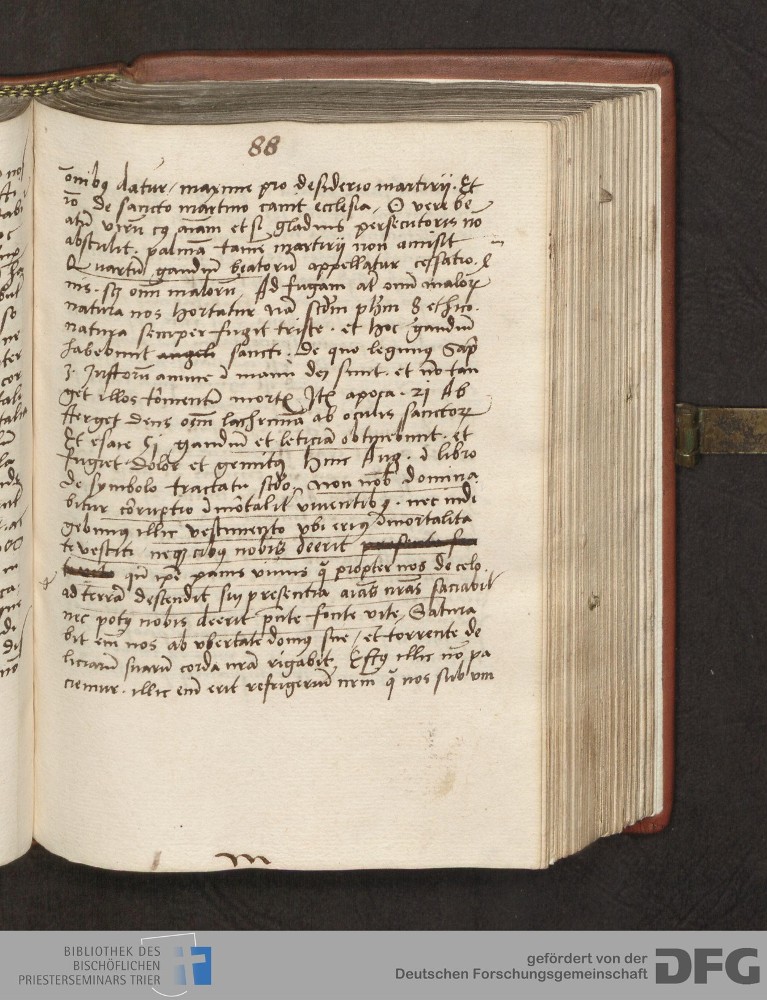 88
onibꝰ datur / maxime pro desiderio martirij. Et
io de sancto martino canit ecclesia / O vere be
atū virū cꝰ aīam etsi gladius persecutoris nō
abstulit. palmā tamē martirij non amisit
Quartū gaudiū beatorū appellatur cessatio
malorū Ad fugam aī omī malorꝝ
natura nos hortatur Nā scdm phm 8 ethico.
natura semper fugit triste. et hoc gaudiū
habebunt angeli sancti. De quo legimus Sap
3. Justorū anime ī manu dei sunt. et nō tan
get illos tormentū mortꝭ Itē apoca. 21 Ab
sterget deus oēm lachrimā ab oculis sanctorꝝ
Et esaie 51 gaudiū et leticiā obtinebunt. et
fugiet dolor et gemitꝰ hinc Aug. ī libro
de symbolo tractatu scdo. Non nob domina
bitur corruptio ī mortalit viuentibꝰ. nec indi
gebimus illic vestimento vbi erimꝰ īmortalita
te vestiti. neqꝫ cibꝰ nobis deerit
qn ipe panis viuus q propter nos de celo
ad terrā descendit sui presentia aīas nras saciabit
nec potꝰ nobis deerit pnte fonte vite. Satura
bit em nos ab vbertate domus sue / et torrente de
liciarū suarū corda nra rigabit. illic nō pa
ciemur. illic em erit refrigeriū nrm q nos sub vm
BIBLIOTHEK DES
BISCHÖFLICHEN
PRIESTERSEMINARS TRIER
gefördert von der
Deutschen Forschungsgemeinschaft
DFG